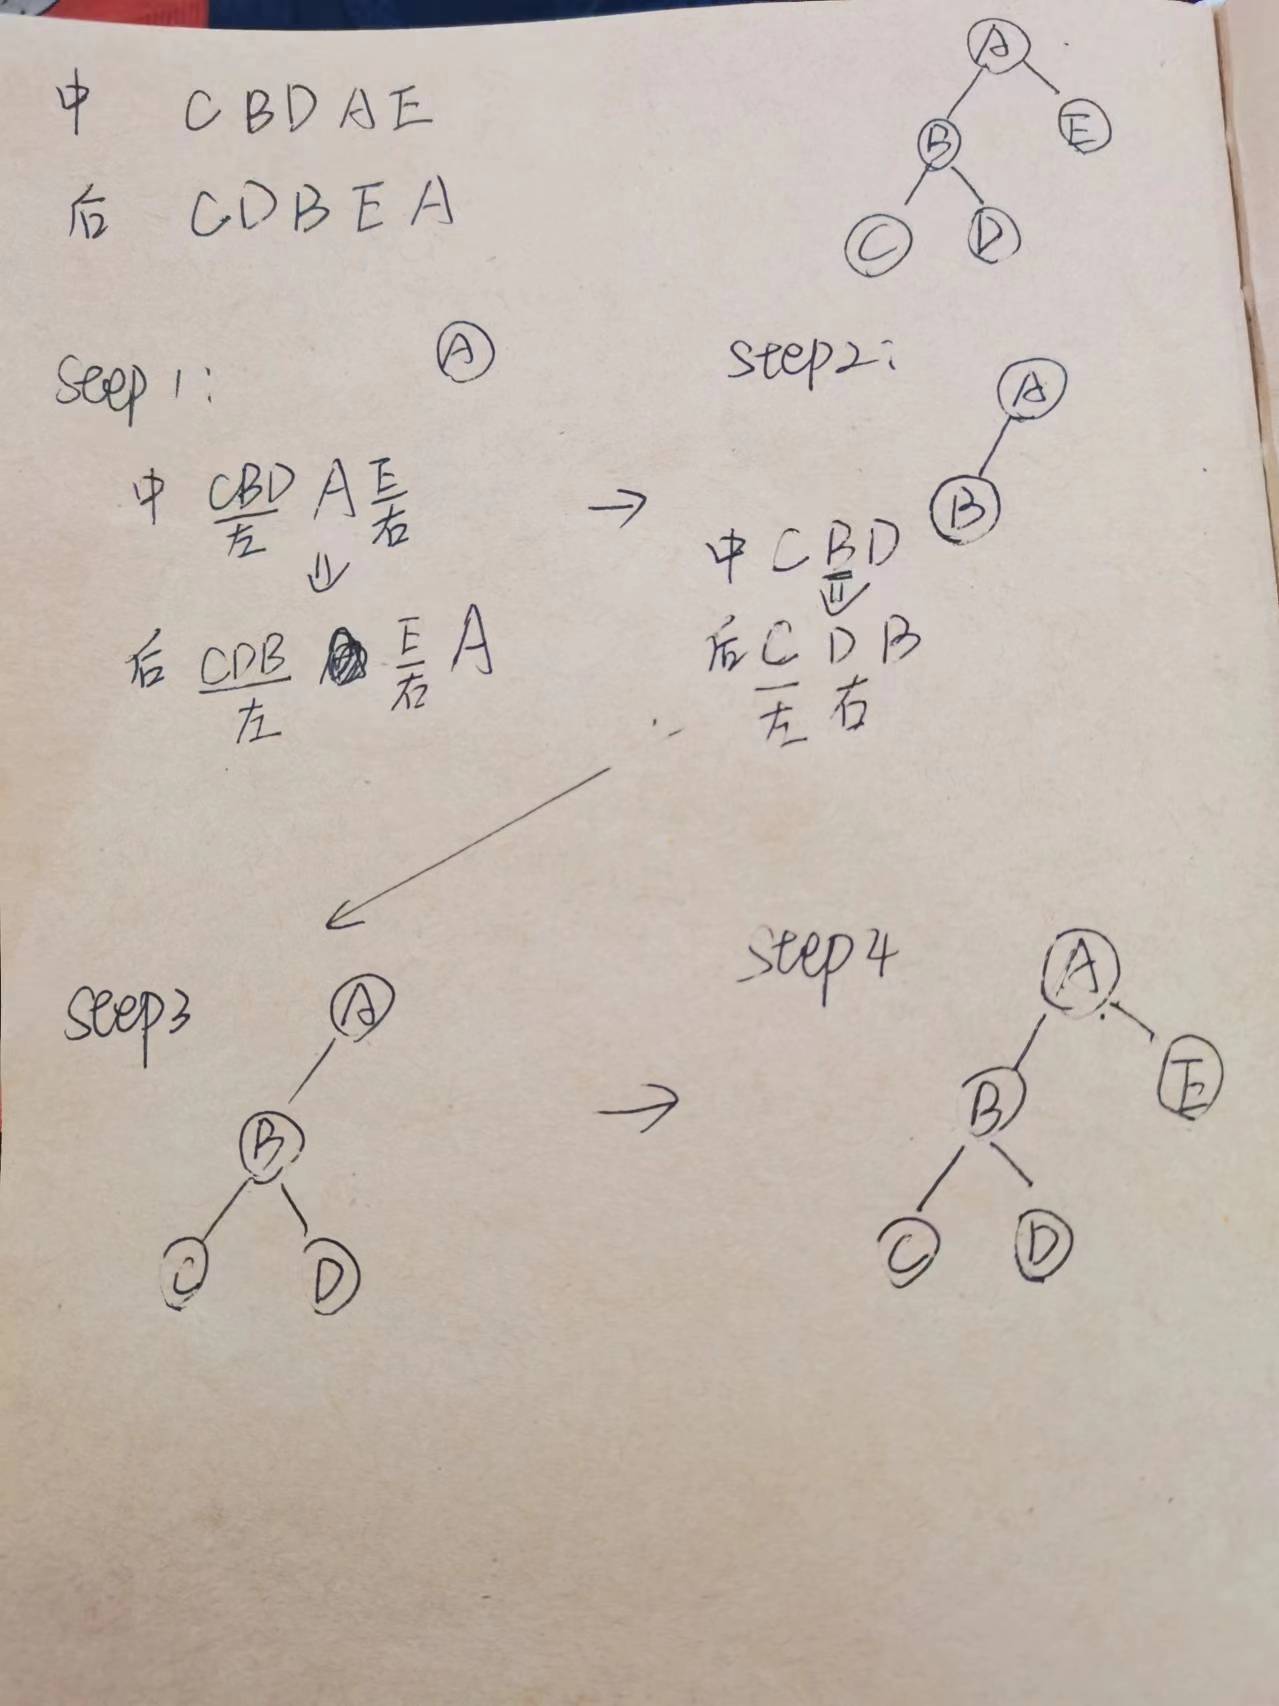 中 CBDAE
后 CDBEA
A
B
E
C
D
Step1:
A
中 CBD A E
左 右
后 CDB E A
左 右
Step2:
A
B
中 CBD
后 C D B
左 右
Step3
A
B
C
D
Step4
A
B
E
C
D